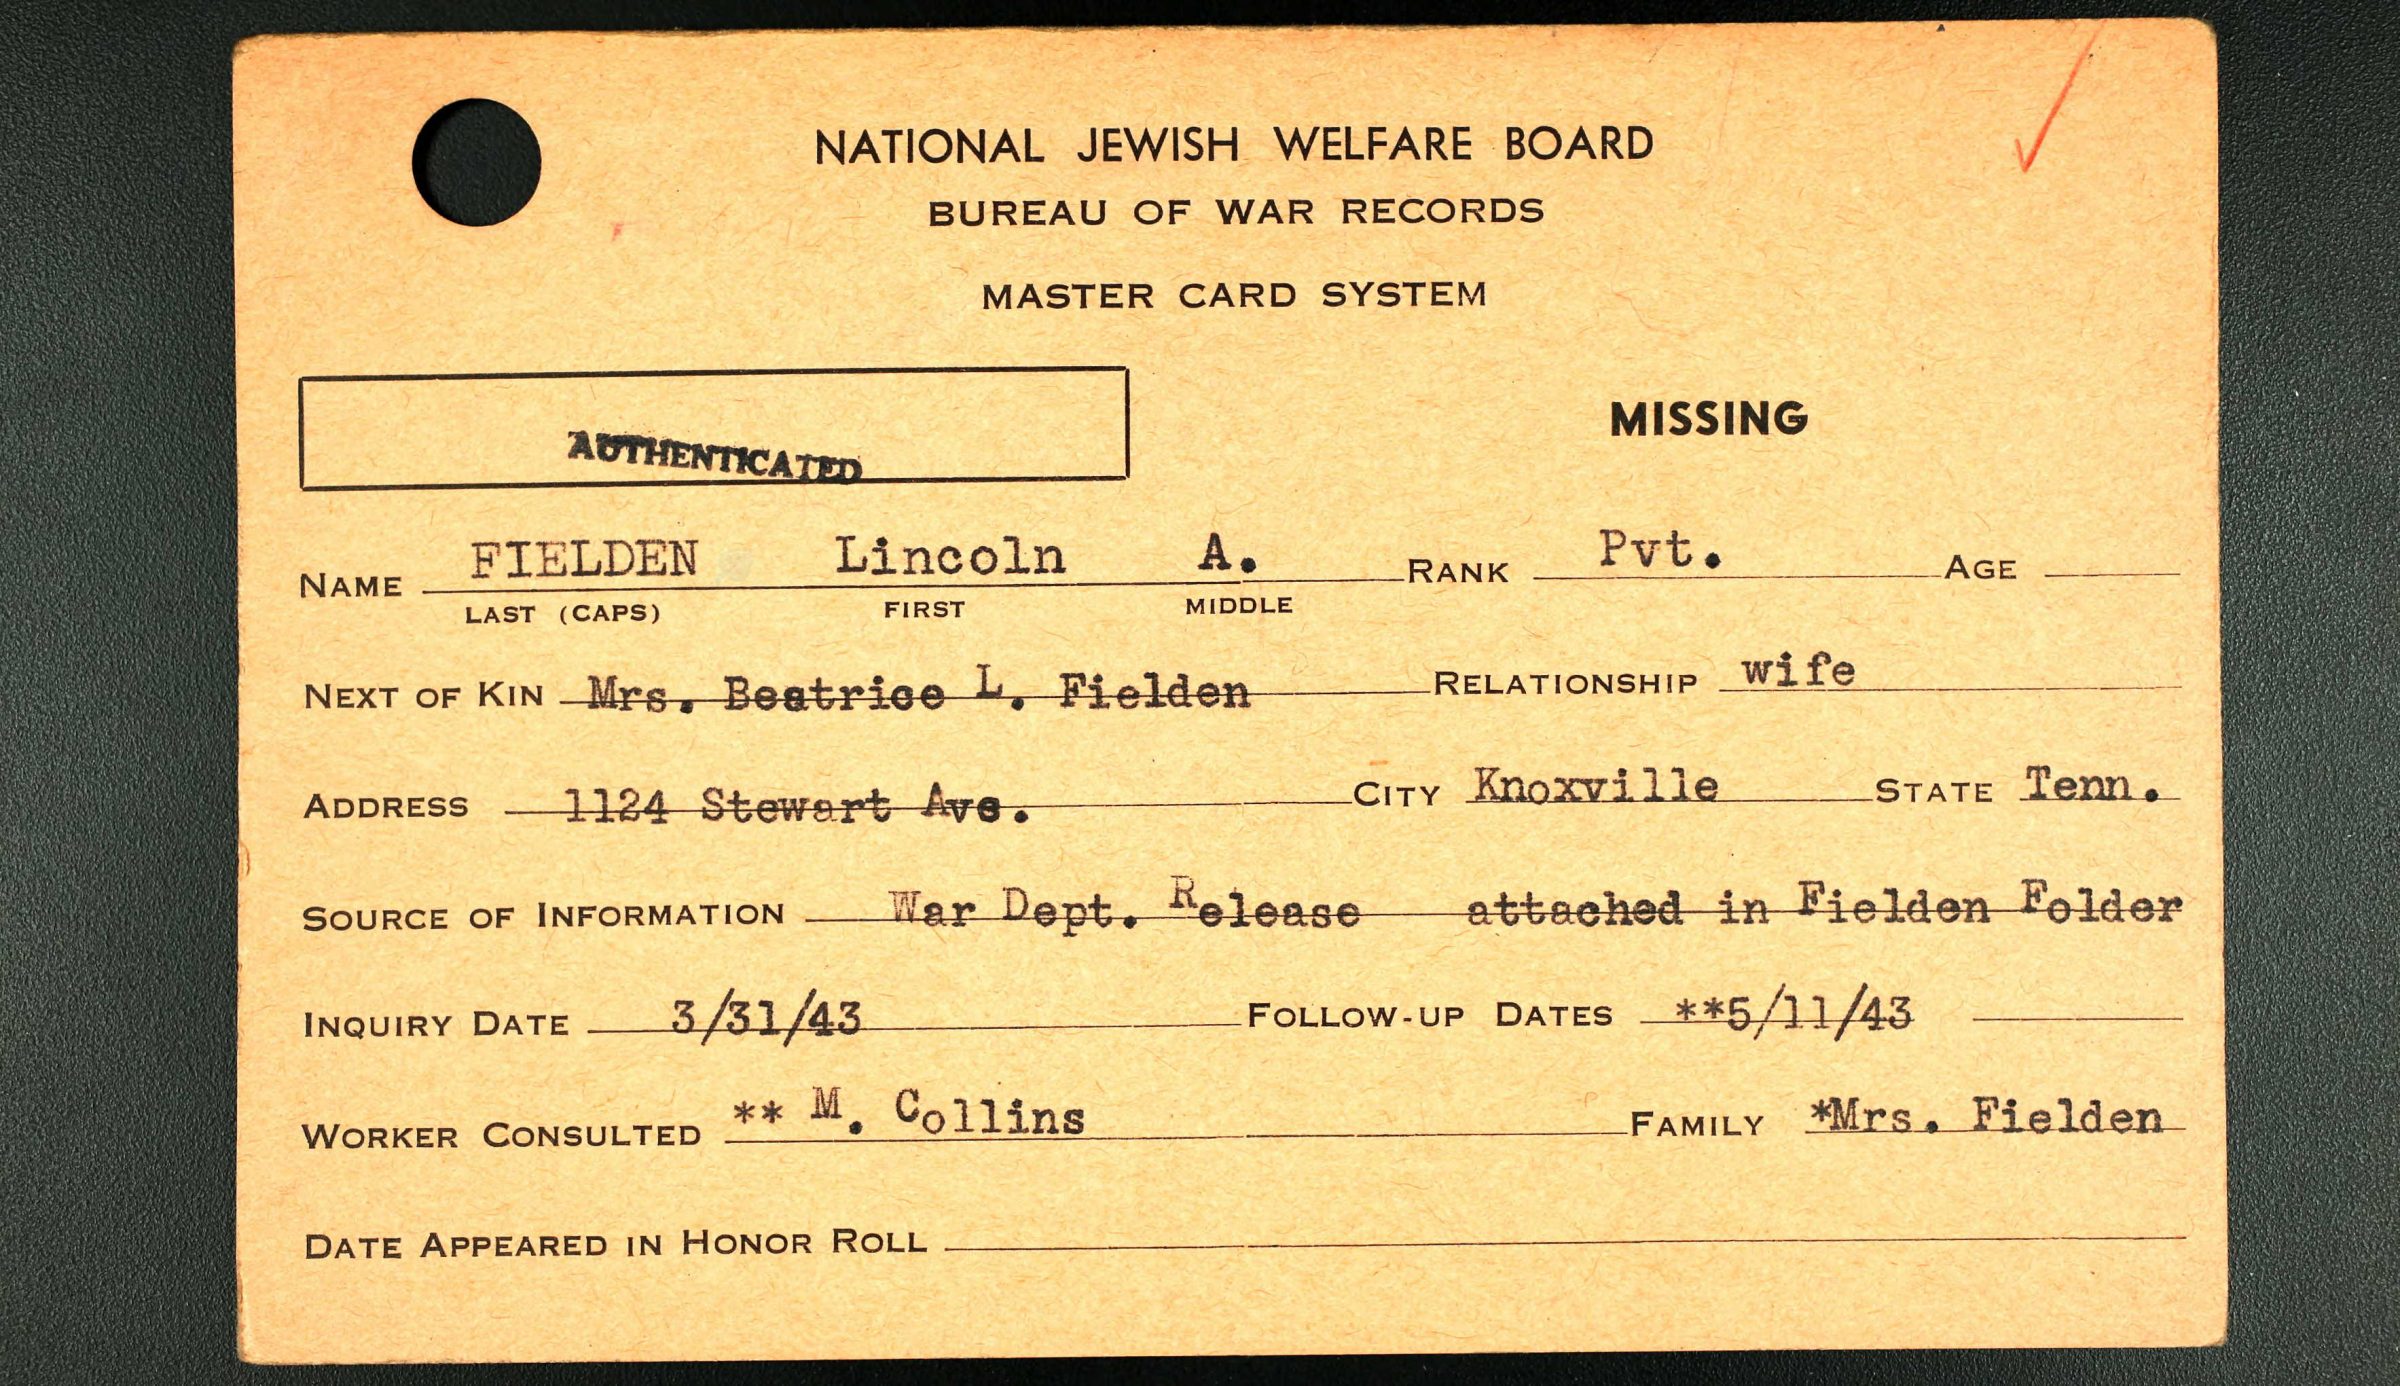 NATIONAL JEWISH WELFARE BOARD
BUREAU OF WAR RECORDS
MASTER CARD SYSTEM
AUTHENTICATED
MISSING
NAME FIELDEN Lincoln A. RANK Pvt. AGE
LAST (CAPS) FIRST MIDDLE
NEXT OF KIN Mrs. Beatrice L. Fielden RELATIONSHIP wife
ADDRESS 1124 Stewart Ave. CITY Knoxville STATE Tenn.
SOURCE OF INFORMATION War Dept. Release attached in Fielden Folder
INQUIRY DATE 3/31/43 FOLLOW-UP DATES **5/11/43
WORKER CONSULTED ** M. Collins FAMILY *Mrs. Fielden
DATE APPEARED IN HONOR ROLL